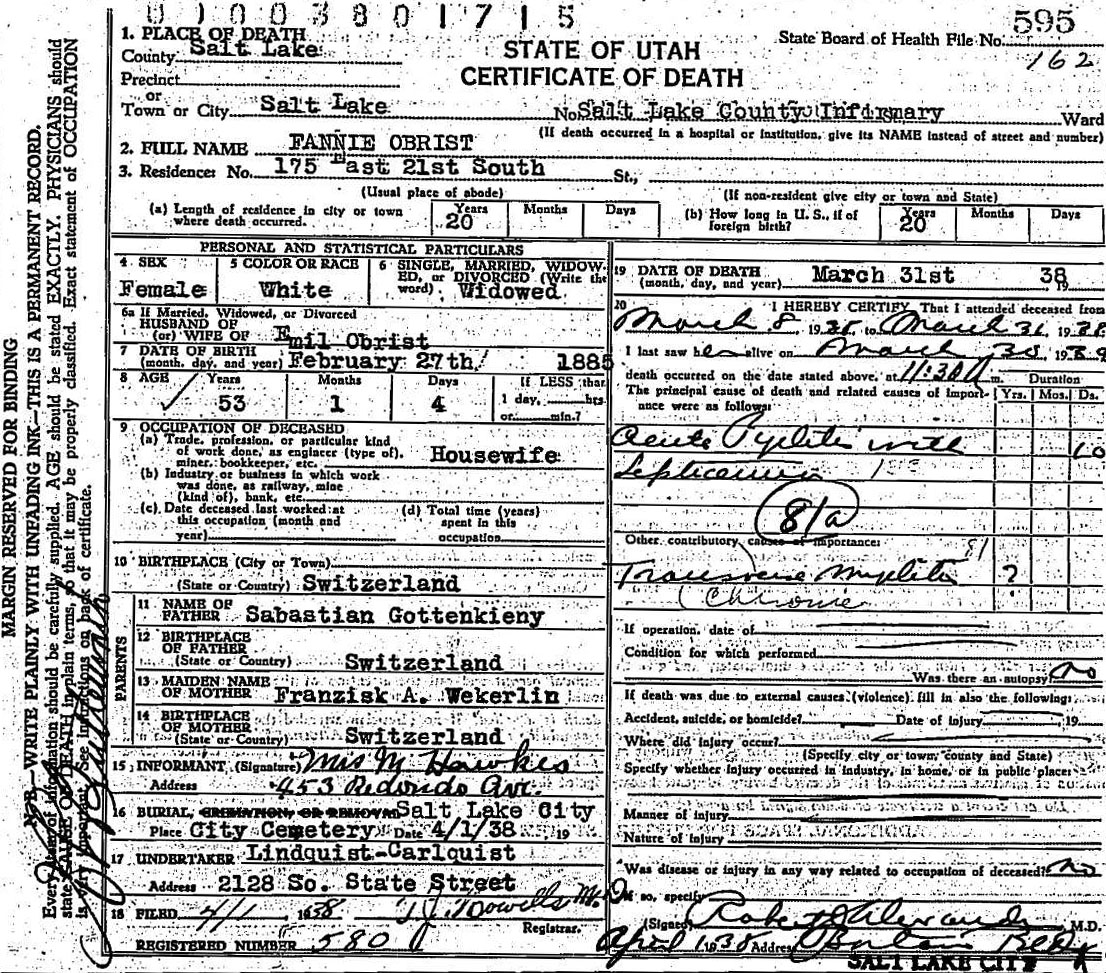 0 1 0 0 3 8 0 1 7 1 5
595
State Board of Health File No.
162
STATE OF UTAH
CERTIFICATE OF DEATH
1. PLACE OF DEATH
County Salt Lake
Precinct
or
Town or City Salt Lake No. Salt Lake County Infirmary Ward
(If death occurred in a hospital or institution, give its NAME instead of street and number)
2. FULL NAME FANNIE OBRIST
3. Residence: No. 175 East 21st South St.,
(Usual place of abode) (If non-resident give city or town and State)
(a) Length of residence in city or town where death occurred. Years 20 Months Days
(b) How long in U. S., if of foreign birth? Years 20 Months Days
PERSONAL AND STATISTICAL PARTICULARS
4 SEX Female
5 COLOR OR RACE White
6 SINGLE, MARRIED, WIDOWED, or DIVORCED (Write the word) Widowed
6a If Married, Widowed, or Divorced
HUSBAND OF
(or) WIFE OF Emil Obrist
7 DATE OF BIRTH
(month, day, and year) February 27th 1885
8 AGE Years 53 Months 1 Days 4 If LESS than 1 day, hrs. or min.?
9 OCCUPATION OF DECEASED
(a) Trade, profession, or particular kind of work done, as engineer (type of), miner, bookkeeper, etc. Housewife
(b) Industry or business in which work was done, as railway, mine (kind of), bank, etc.
(c) Date deceased last worked at this occupation (month and year)
(d) Total time (years) spent in this occupation
10 BIRTHPLACE (City or Town)
(State or Country) Switzerland
PARENTS
11 NAME OF FATHER Sabastian Gottenkieny
12 BIRTHPLACE OF FATHER
(State or Country) Switzerland
13 MAIDEN NAME OF MOTHER Franzisk A. Wekerlin
14 BIRTHPLACE OF MOTHER
(State or Country) Switzerland
15 INFORMANT (Signature) Mrs M Hawkes
Address 453 Redondo Ave.
16 BURIAL, CREMATION, OR REMOVAL Salt Lake City
Place City Cemetery Date 4/1/38 19
17 UNDERTAKER Lindquist-Carlquist
Address 2128 So. State Street
18 FILED 4/1 1938 T J Howells M.D.
Registrar.
REGISTERED NUMBER 580
19 DATE OF DEATH
(month, day, and year) March 31st 1938
20 I HEREBY CERTIFY, That I attended deceased from
March 8 1938 to March 31 1938
I last saw her alive on March 30 1938
death occurred on the date stated above, at 11:30 A m. Duration
The principal cause of death and related causes of importance were as follows: Yrs. Mos. Ds.
Acute Pyelitis with 10
Septicemia
81a
Other contributory causes of importance:
81
Transverse Myelitis ?
Chronic
If operation, date of
Condition for which performed
Was there an autopsy No
If death was due to external causes (violence) fill in also the following:
Accident, suicide, or homicide? Date of injury 19
Where did injury occur?
(Specify city or town, county and State)
Specify whether injury occurred in industry, in home, or in public place:
Manner of injury
Nature of injury
Was disease or injury in any way related to occupation of deceased? No
If so, specify
(Signed) Robert Alexander M.D.
April 1 1938 Address
SALT LAKE CITY
MARGIN RESERVED FOR BINDING
N. B.—WRITE PLAINLY WITH UNFADING INK—THIS IS A PERMANENT RECORD.
Every item of information should be carefully supplied. AGE should be stated EXACTLY. PHYSICIANS should
state CAUSE OF DEATH in plain terms, so that it may be properly classified. Exact statement of OCCUPATION
is very important. See instructions on back of certificate.